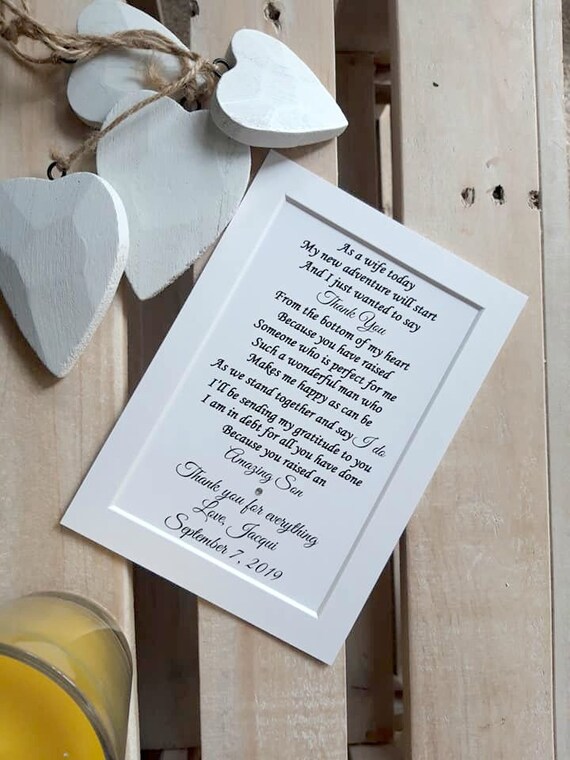 As a wife today
My new adventure will start
And I just wanted to say
Thank You
From the bottom of my heart
Because you have raised
Someone who is perfect for me
Such a wonderful man who
Makes me happy as can be
As we stand together and say I do
I'll be sending my gratitude to you
I am in debt for all you have done
Because you raised an
Amazing Son
Thank you for everything
Love, Jacqui
September 7, 2019